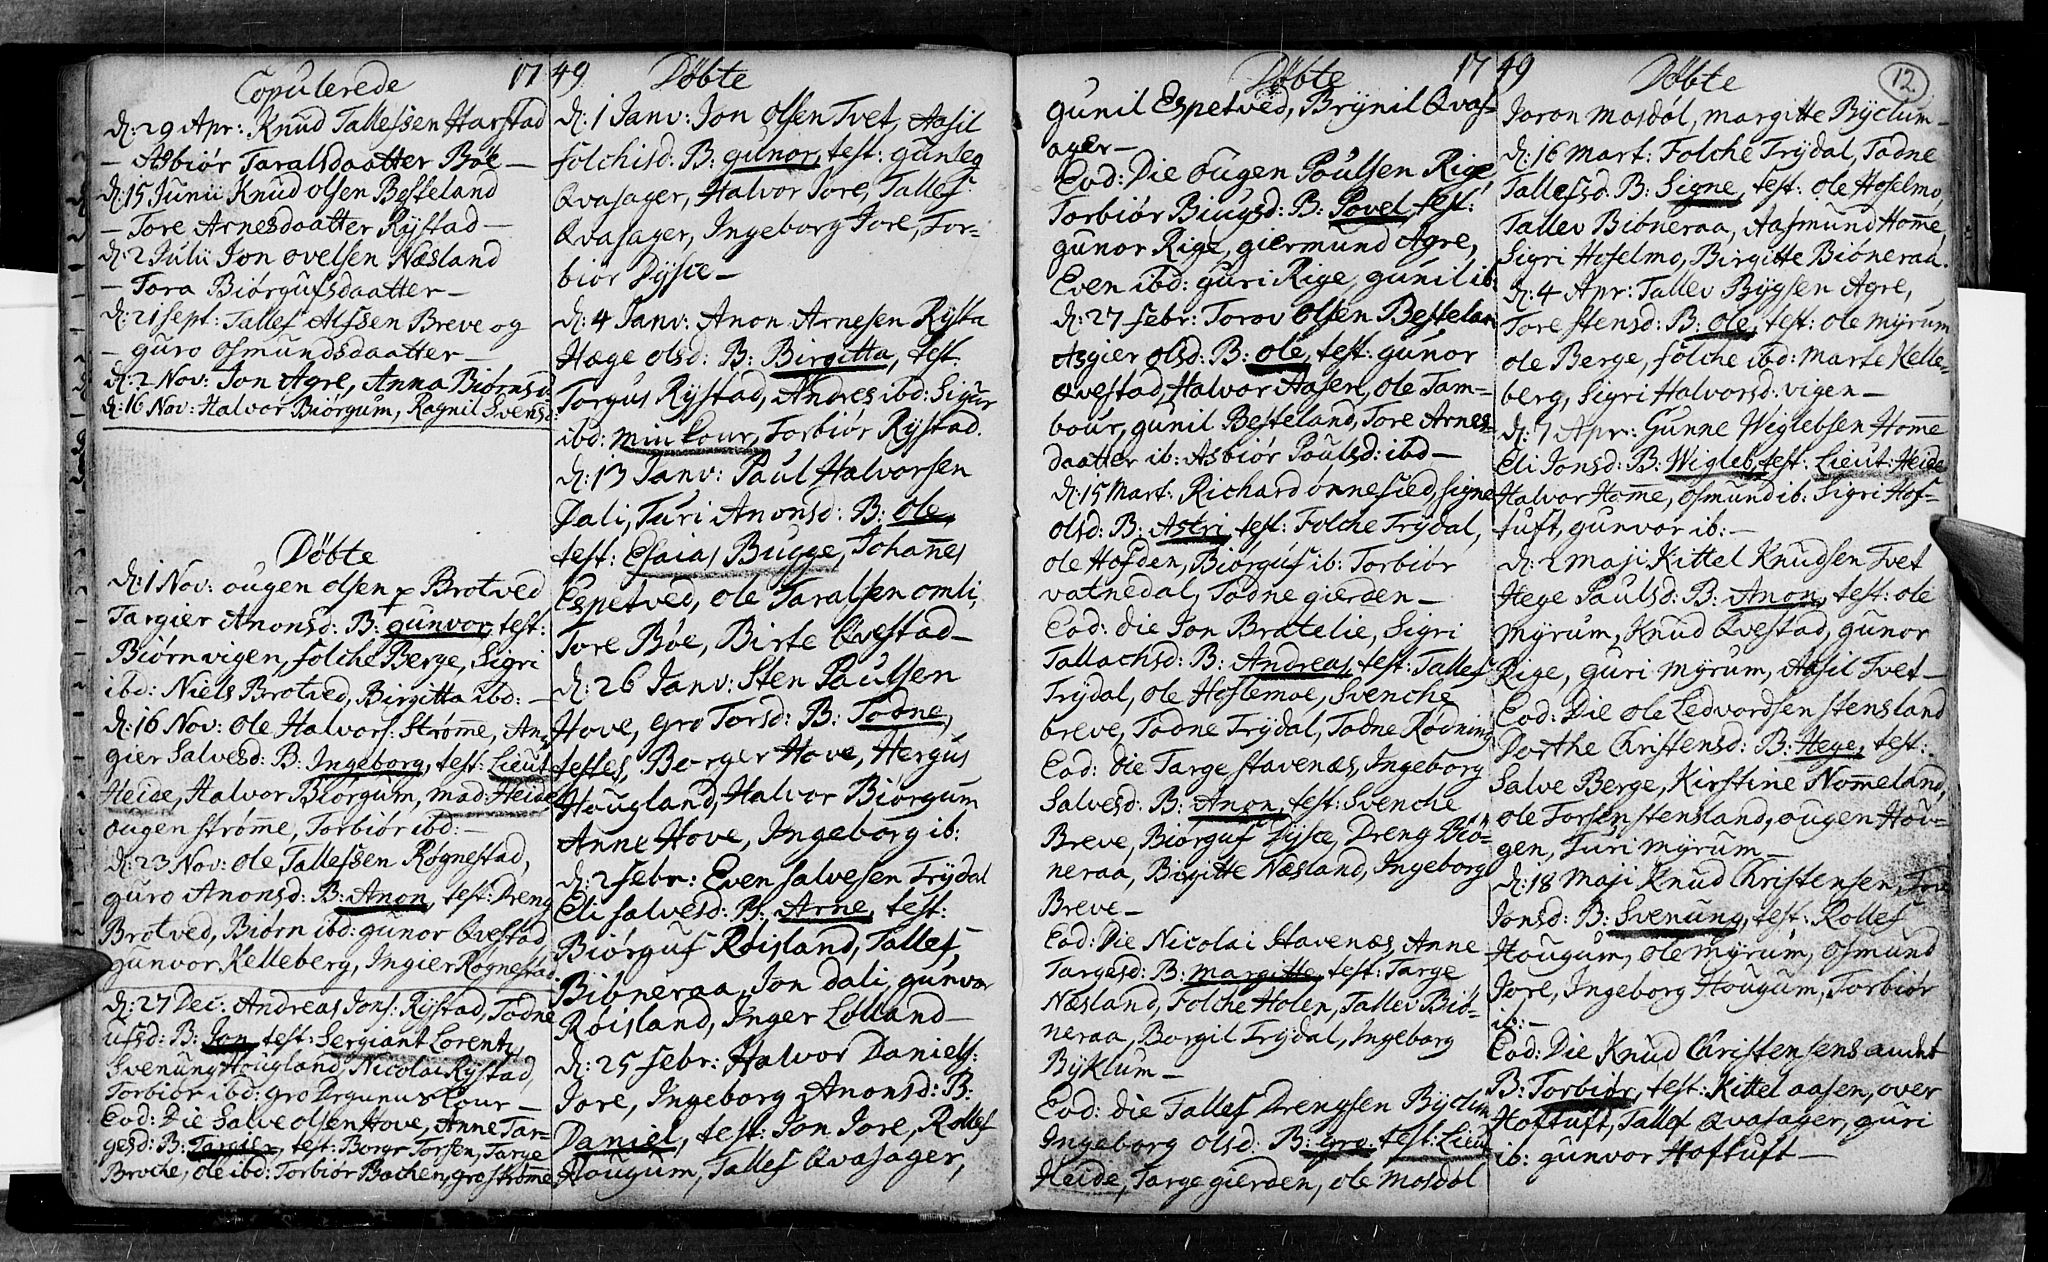 Copulerede 17
d: 29 Apr: Knud Tallefsen Harstad
– Asbiør Taralsdaatter Bøe –
d: 15 Junii Knud Olsen Besteland
– Tore Arnesdaatter Rÿstad –
d: 2 Julii Jon Ovelsen Næsland
– Tora Biørgufsdaatter –
d: 21 Sept: Tallef Alfsen Breve og
– guro Osmundsdaatter –
d: 2 Nov: Jon Agre, Anna Biørnsd:
d: 16 Nov: Halvor Biørgum, Ragnil Svensd:
Døbte
d: 1 Nov: ougen olsen Brotved
Targier Anonsd: B: gunvor, test:
Biørn vigen, folche Berge, Sigri
ibd: Niels Brotved, Birgitta ibd: –
d: 16 Nov: Ole Halvors: Strøm̄e, An
gier Salvesd: B: Ingeborg, test: Lieut
Heide, Halvor Biørgum, mad: Heide
ougen strøm̄e, Torbiør ibd: –
d: 23 Nov: Ole Tallefsen Røgnestad,
guro Anonsd: B: Anon, test: Dreng
Brotved, Biørn ibd: gunor Qvestad,
gunvor Kelleberg, Ingier Røgnestad
d: 27 Dec: Andreas Jons: Rÿstad, Todne
ufsd: B: Jon test: Sergiant Lorentz,
Svenung Hougland, Nicolai Rÿstad,
Torbiør ibd: gro
Eod: Die Salve olsen Hove, Anne Tar-
gesd: B: test: Borgr Torsen, Targe
Broche, ole ibd: Torbiør Bachen, gro strøm̄e
49 Døbte
d: 1 Janv: Jon Olsen Tvet, Aasil
folchisd: B: gunor, test: gunleg
Qvasager, Halvor Jore, Tallef
Qvasager, Ingeborg Jore, Tor-
biør Dÿsce –
d: 4 Janv: Anon Arnesen Rÿsta
Hæge olsd: B: Birgitta, test.
Torgus Rÿstad, Andres ibd: Sigur
ibd: Torbiør Rÿstad.
d: 13 Janv: Paul Halvorsen
Dali, Turi Anonsd: B: Ole,
test: Esaias Bugge, Johan̄es
Espetved, Ole Taralsen omli,
Tore Bøe, Birte Qvestad –
d: 26 Janv: Sten Paulsen
Hove, gro Torsd: B: Todne,
testes, Borger Hove, Hergus
Hougland, Halvor Biørgum
Anne Hove, Ingeborg ib:
d: 2 febr: Even Salvesen Trÿdal
Eli Salvesd: B: Arne, test:
Biørguf Røisland, Tallef
Biøneraa, Jon dali, gunvor
Røisland, Inger Lølland –
d: 25 febr: Halvor Daniels:
Jore, Ingeborg Anonsd: B:
Daniel, test: Jon Jore, Rollef
Hougum, Tallef Qvasager,
Døbte 17
gunil Espetved, Brÿnil Qvas-
ager –
Eod: Die ougen Poulsen Rige,
Torbiør Biugsd: B: Povel, test:
gunor Rige, giermund Agre,
Even ibd: guri Rige, gunil ib:
d: 27 febr: Torov Olsen Bestelan
Asgier olsd: B: Ole, test: gunor
Qvestad, Halvor Aasen, Ole Tam-
bour, gunil Besteland, Tore Arnes-
daatter ib: Asbiør Poulsd: ibd –
d: 15 Mart: Richard Onnefied, signe
olsd: B: Astri, test: Folche Trÿdal,
ole Hofden, Biørguf ib: Torbiør
vatnedal, Todne gierden –
Eod: die Jon Bratelie, Sigri
Tallachsd: B: Andreas, test: Tallef
Trÿdal, Ole Hoslemoe, Svenche
breve, Todne Trÿdal, Todne Rødning
Eod: die Targe Stavenæs, Ingeborg
Salvesd: B: Anon, test: Svenche
Breve, Biørguf Dÿsce, Dreng Biø-
neraa, Birgitte Næsland, Ingeborg
Breve –
Eod: Die Nicolai Stavenæs, Anne
Targesd: B: margitte, test: Targe
Næsland, Folche Holen, Tallev Biø-
neraa, Borgil Trÿdal, Ingeborg
Bÿklum –
Eod: die Tallef Drengsen Bÿclum
Ingeborg Olsd: B: gro, test: Lieut
Heide, Targe gierden, ole Mosdøl
49 Døbte 12
Joron Mosdøl, margitte Bÿclum –
d: 16 Mart: Folche Trÿdal, Todne
Tallefsd: B: Signe, test: Ole Hoselmo,
Tallev Biøneraa, Aasmund Hom̄e
Sigri Hoselmo, Birgitte Biøneraa.
d: 4 Apr: Tallev Bÿgsen Agre,
Tore Stensd: B: Ole, test: Ole Mÿrum
ole Berge, folche ibd: Marte Kelle-
berg, Sigri Halvorsd: vigen –
d: 7 Apr: Gunne Wiglebsen Hom̄e
Eli Jonsd: B: Wigleb, test: Lieut: Heide
Halvor Hom̄e, Osmund ib: Sigri Hof-
tuft, gunvor ib: –
d: 2 Maji Kittel Knudsen Tvet
Hege Paulsd: B: Anon, test: Ole
Mÿrum, Knud Qvestad, gunor
Rige, guri Mÿrum, Aasil Tvet –
Eod: Die Ole Ledvordsen Stensland
Dorthe Christensd: B: Hege, test:
Salve Berge, Kirstine Nom̄eland,
ole Torsen Stensland, ougen Hov-
gen, Turi Mÿrum –
d: 18 Maji Knud Christensen, Tore
Jonsd: B: Svenung, test: Rollef
Hougum, Ole Mÿrum, Osmund
Jore, Ingeborg Hougum, Torbiør
ib: –
Eod: Die Knud Christensens andet
B: Torbiør, test: Kittel aasen, over
Hoftuft, Tallef Qvasager, guri
ib: gunvor Hoftuft –